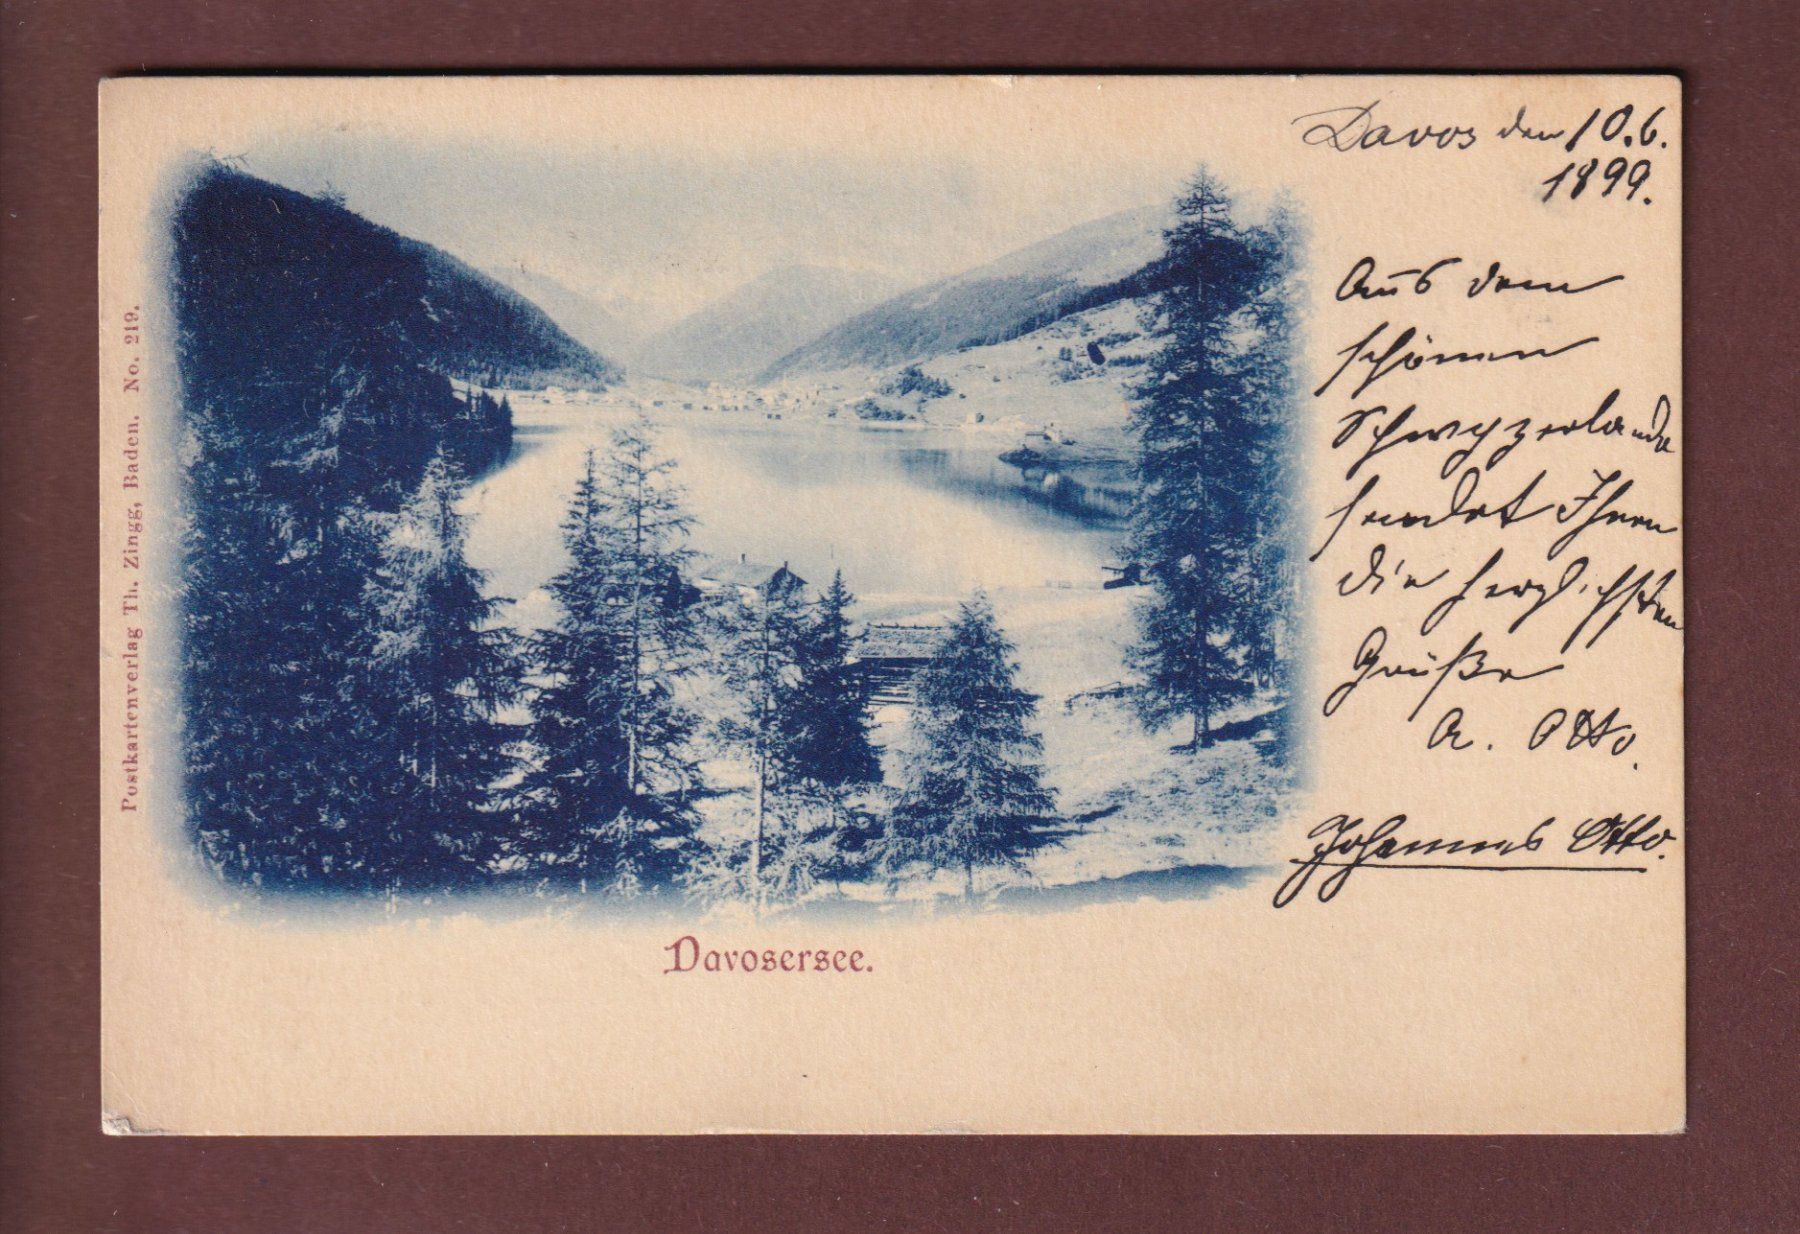 Davos den 10.6.
1899.
Aus dem
schönen
Schwyzerlande
sendet Ihnen
die herzlichsten
Grüße
A. Otto.
Johannes Otto.
Davosersee.
Postkartenverlag Th. Zingg, Baden. No. 219.